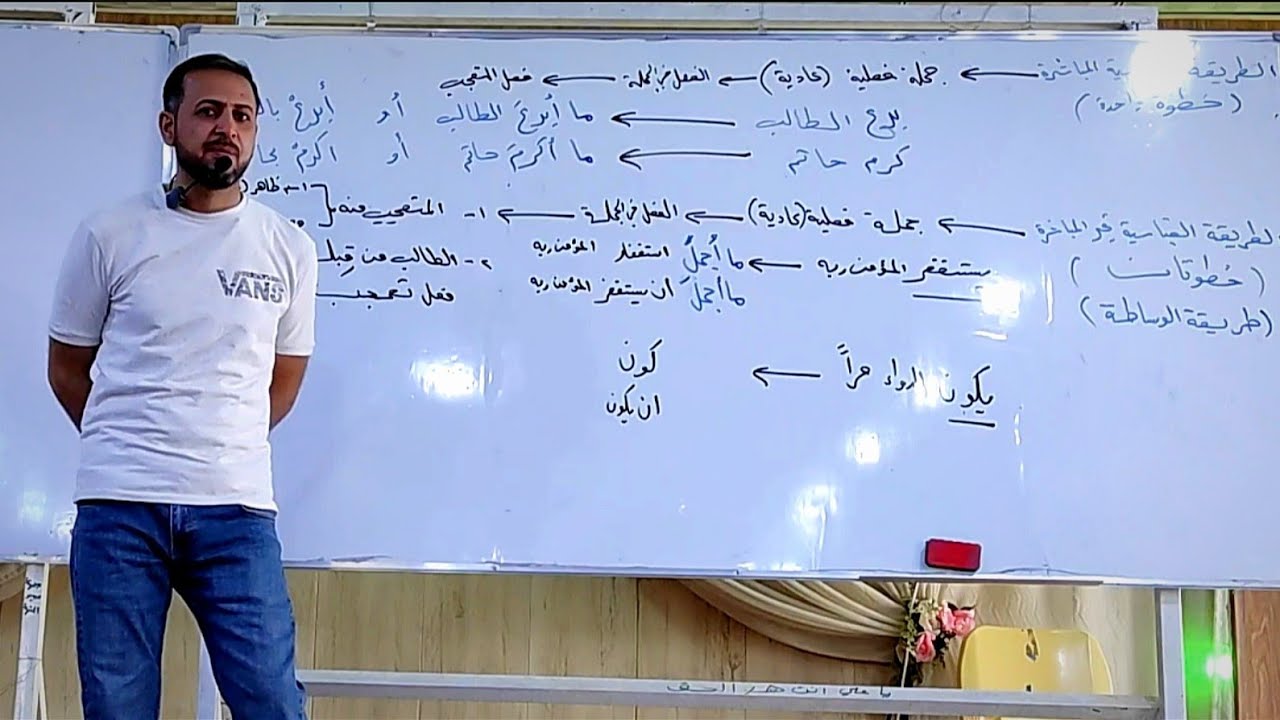 الطريقة القياسية المباشرة ← جملة فعلية (عادية) ← الفعل في الجملة ← فعل التعجب
(خطوة واحدة)
بدع الطالب ← ما أبدعَ الطالب أو أبدعْ
كرم حاتم ← ما أكرمَ حاتم أو اكرمْ
لطريقة القياسية غير المباشرة ← جملة فعلية (عادية) ← الفعل في الجملة ← ١- المتعجب منه
١- م ظاهر
(خطوتان)
(طريقة الوساطة)
يستغفر المؤمن ربه ← ما أجملَ استغفار المؤمن ربه
ما أجملَ أن يستغفر المؤمن ربه
٢- الطالب من قِبلك
فعل تعجب
يكون الدواء مراً ← كون
ان يكون
VANS
يا علي انت